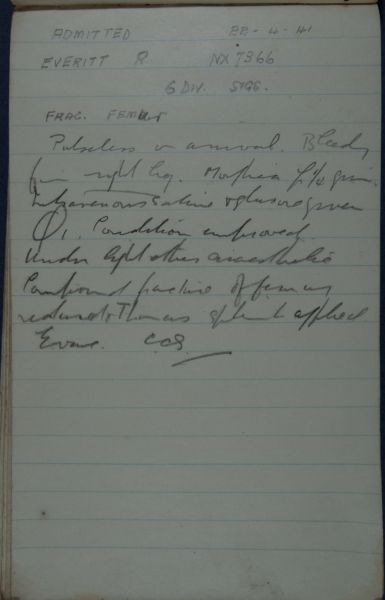 ADMITTED 22-4-41
EVERITT R NX7366
6 DIV. SIGS.
FRAC. FEMUR
Pulseless on arrival. Bleeding
from right leg. Morphia gr ¼ given.
Intravenous saline & glucose given
Condition improved
Under light ether anaesthetic
Compound fracture of femur
reduced Thomas splint applied
Evac. CCS